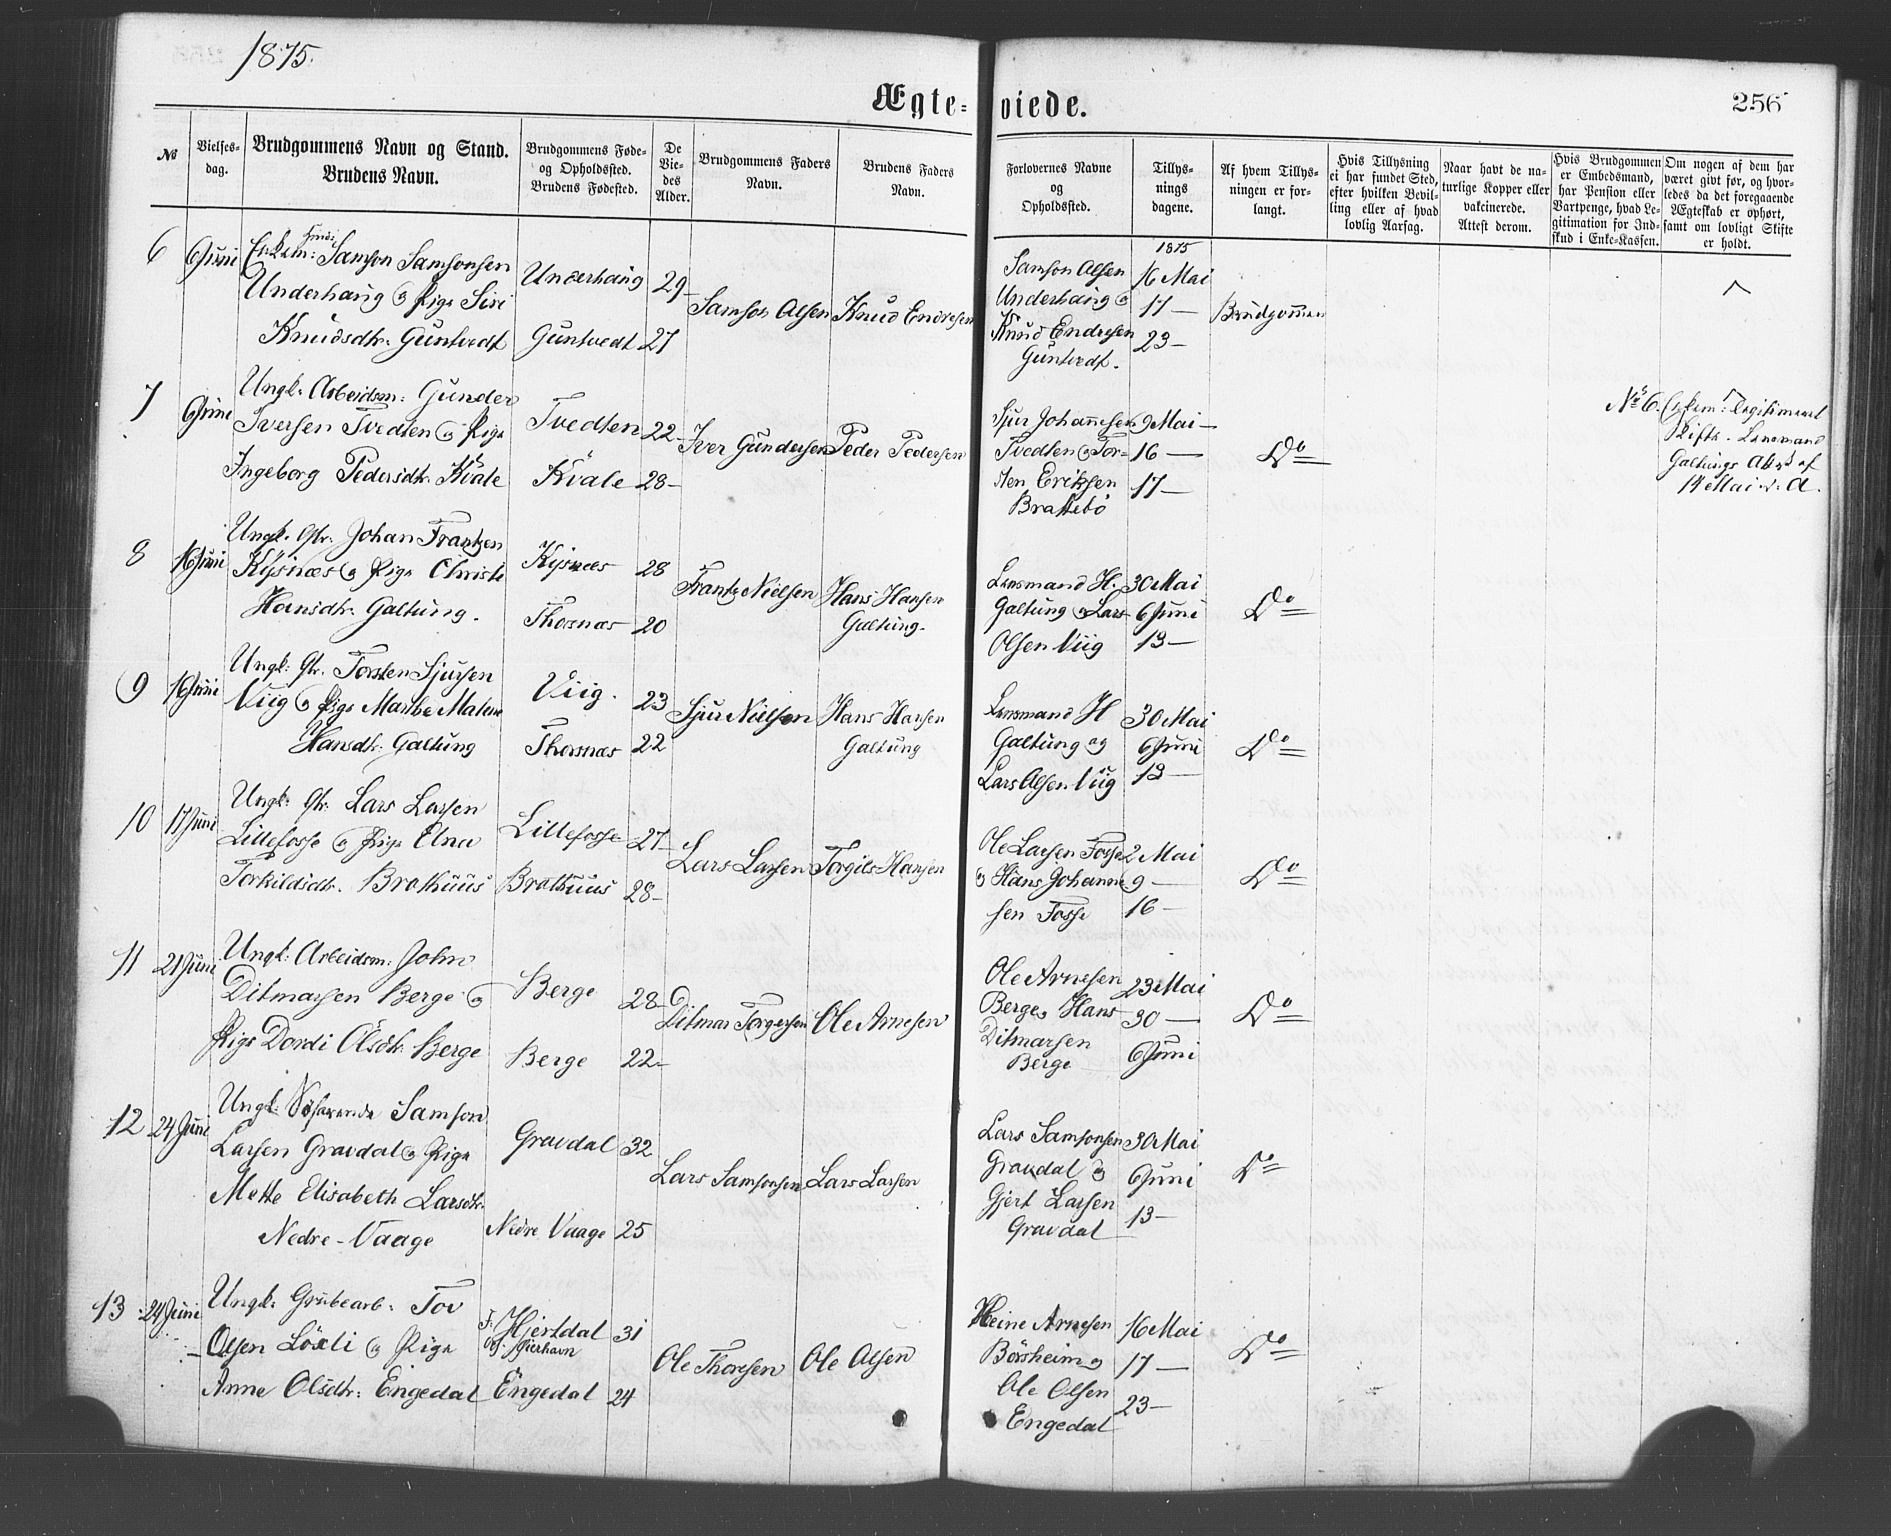 1875.
Ægte=viede.
256
№
Vielses-dag.
Brudgommens Navn og Stand. Brudens Navn.
Brudgommens Føde- og Opholdssted. Brudens Fødested.
De Vie-des Alder.
Brudgommens Faders Navn.
Brudens Faders Navn.
Forlovernes Navne og Opholdssted.
Tillys-nings dagene.
Af hvem Tillys-ningen er for-langt.
Hvis Tillysning ei har fundet Sted, efter hvilken Bevil-ling eller af hvad lovlig Aarsag.
Naar havt de na-turlige Kopper eller vakcinerede. Attest derom.
Hvis Brudgommen er Embedsmand, har Pension eller Vartpenge, hvad Le-gitimation for Ind-skud i Enke-Kassen.
Om nogen af dem har været givt før, og hvor-ledes da det foregaaende Ægteskab er ophørt, samt om lovligt Skifte er holdt.
6
6 Juni
Enkem: Samson Samsonsen
Underhaug og Pige Siri
Knudsdtr. Guntvedt
Underhaug
Guntvedt
29
27
Samson Olsen
Knud Endresen
Samson Olsen
Underhaug og
Knud Endresen
Guntvedt.
1875
16 Mai
17 —
23 —
Brudgommen
7
6 Juni
Ungk. Arbeidsm: Gunder
Iversen Tvedten og Pige
Ingeborg Pedersdtr. Kvale
Tvedten
Kvale
22
28
Iver Gundersen
Peder Pedersen
Sjur Johannesen
Tvedten og Tor=
sten Eriksen
Brattebö
9 Mai —
16 —
17 —
Do
No 6. Enkem: legitimeret
Skifte. Lensmand
Galtungs Att af
14 Mai d. A.
8
16 Juni
Ungk. Gbr. Johan Frantzen
Kysnæs og Pige Christi
Hansdtr. Galtung.
Kysnæs
Thorsnæs
28
20
Frantz Nielsen
Hans Hansen
Galtung.
Lensmand H.
Galtung og Lars
Olsen Viig
30 Mai
6 Juni
13 —
Do
9
16 Juni
Ungk. Gbr. Torsten Sjursen
Viig og Pige Marthe Malene
Hansdtr. Galtung
Viig.
Thorsnæs
23
22
Sjur Nielsen
Hans Hansen
Galtung
Lensmand H
Galtung og
Lars Olsen Viig
30 Mai
6 Juni
13 —
Do
10
17 Juni
Ungk. Gbr. Lars Larsen
Lillefosse og Pige Elna
Torkildsdtr. Brathuus
Lillefosse
Brathuus
27
28
Lars Larsen
Torgils Hansen
Ole Larsen Fosse
og Hans Johanne
sen Fosse
2 Mai
9 —
16 —
Do
11
21 Juni
Ungk. Arbeidsm: John
Ditmarsen Berge og
Pige Dordi Olsdtr. Berge
Berge
Berge
28
22
Ditmar Torgersen
Ole Arnesen
Ole Arnesen
Berge, Hans
Ditmarsen
Berge
23 Mai
30 —
6 Juni
Do
12
24 Juni
Ungk. Söfarende Samson
Larsen Gravdal og Pige
Mette Elisabeth Larsdtr.
Nedre-Vaage
Gravdal
Nedre Vaage
32
25
Lars Samsonsen
Lars Larsen
Lars Samsonsen
Gravdal og
Gjert Larsen
Gravdal
30 Mai
6 Juni
13 —
Do
13
24 Juni
Ungk: Grubearb: Tov
Olsen Löxli og Pige
Anne Olsdtr: Engedal
F. Hjertdal
Engedal
31
24
Ole Thoresen
Ole Olsen
Heine Arnesen
Börsheim og
Ole Olsen
Engedal
16 Mai
17 —
23 —
Do